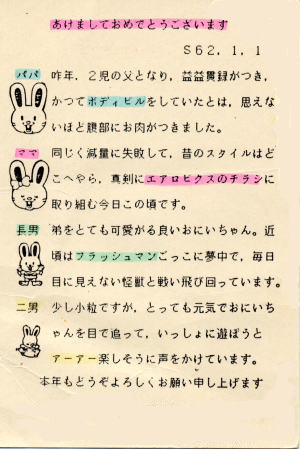 あけましておめでとうございます
S62.1.1
パパ 昨年、2児の父となり、益益貫録がつき、
かつてボディビルをしていたとは、思えな
いほど腹部にお肉がつきました。
ママ 同じく減量に失敗して、昔のスタイルはど
こへやら、真剣にエアロビクスのチラシに
取り組む今日この頃です。
長男 弟をとても可愛がる良いおにいちゃん。近
頃はフラッシュマンごっこに夢中で、毎日
目に見えない怪獣と戦い飛び回っています。
二男 少し小粒ですが、とっても元気でおにいち
ゃんを目で追って、いっしょに遊ぼうと
アーアー楽しそうに声をかけています。
本年もどうぞよろしくお願い申し上げます